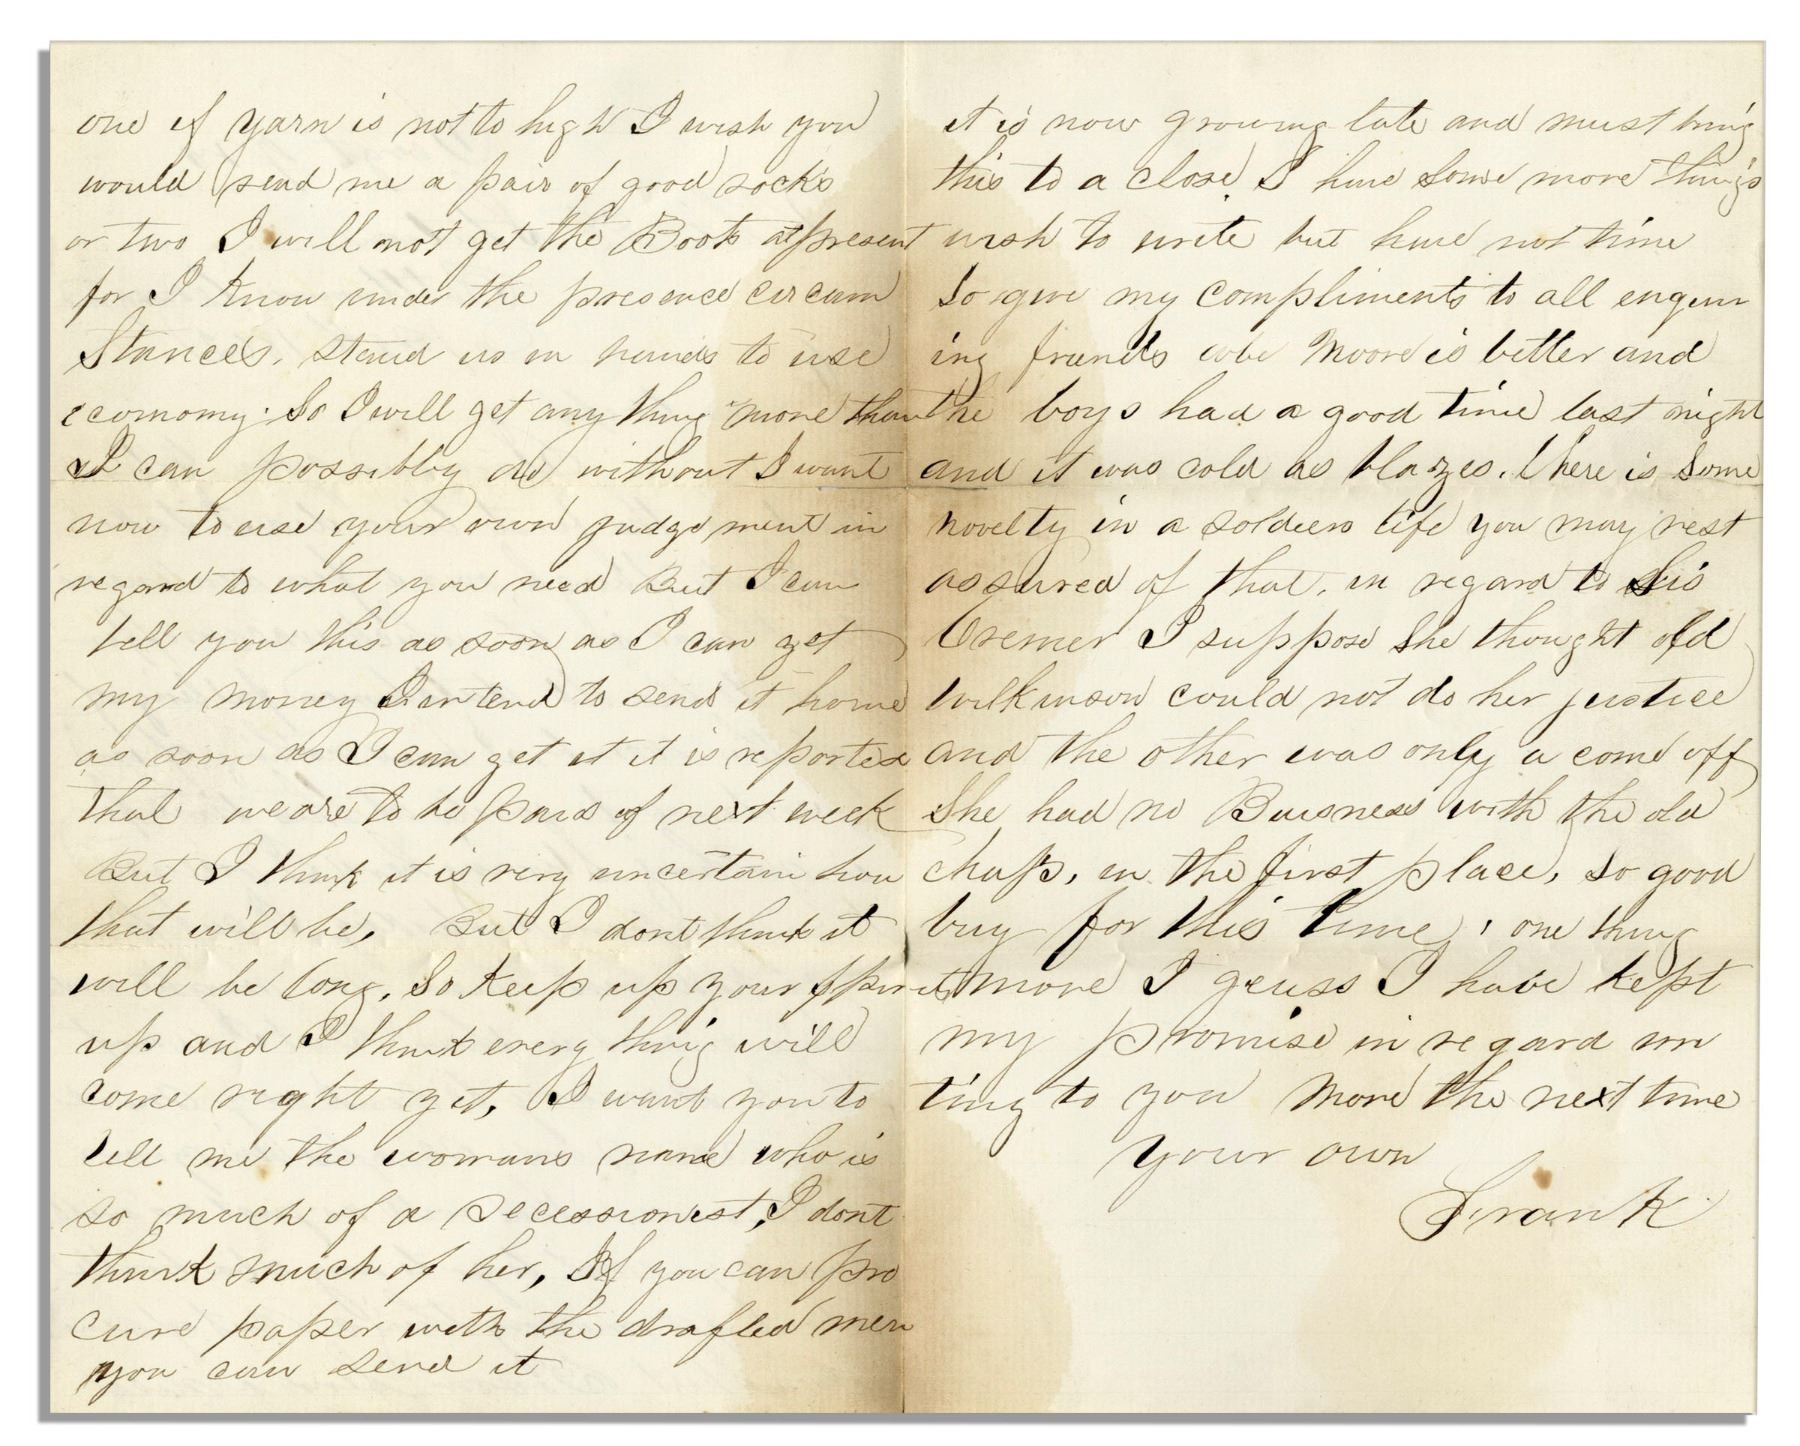 one if yarn is not to high I wish you
would send me a pair of good socks
or two I will not get the Boots at present
for I know under the presence circum
Stances, stand us in hands to use
economy. So I will get any thing more than
I can possibly do without I want
now to use your own judgement in
regard to what you need But I can
tell you this as soon as I can get
my money I intend to send it home
as soon as I can get it it is reported
that we are to be paid of next week
But I think it is very uncertain how
that will be, But I dont think it
will be long, So keep up your spirits
up and I think every thing will
come right yet, I want you to
tell me the womans name who is
so much of a secessionest, I dont
think much of her, If you can pro
cure paper with the drafted men
you can send it
it is now growing late and must bring
this to a close I have some more things
wish to write but have not time
So give my compliments to all enquir
ing friends Moore is better and
the boys had a good time last night
and it was cold as blazes. There is some
novelty in a soldiers life you may rest
assured of that, in regard to
Cremer I suppose she thought old
Wilkinson could not do her justice
and the other was only a come off
She had no Buisness with the old
chap, in the first place, so good
buy for this time, one thing
more I geuss I have kept
my promise in regard wri
ting to you More the next time
your own
Frank